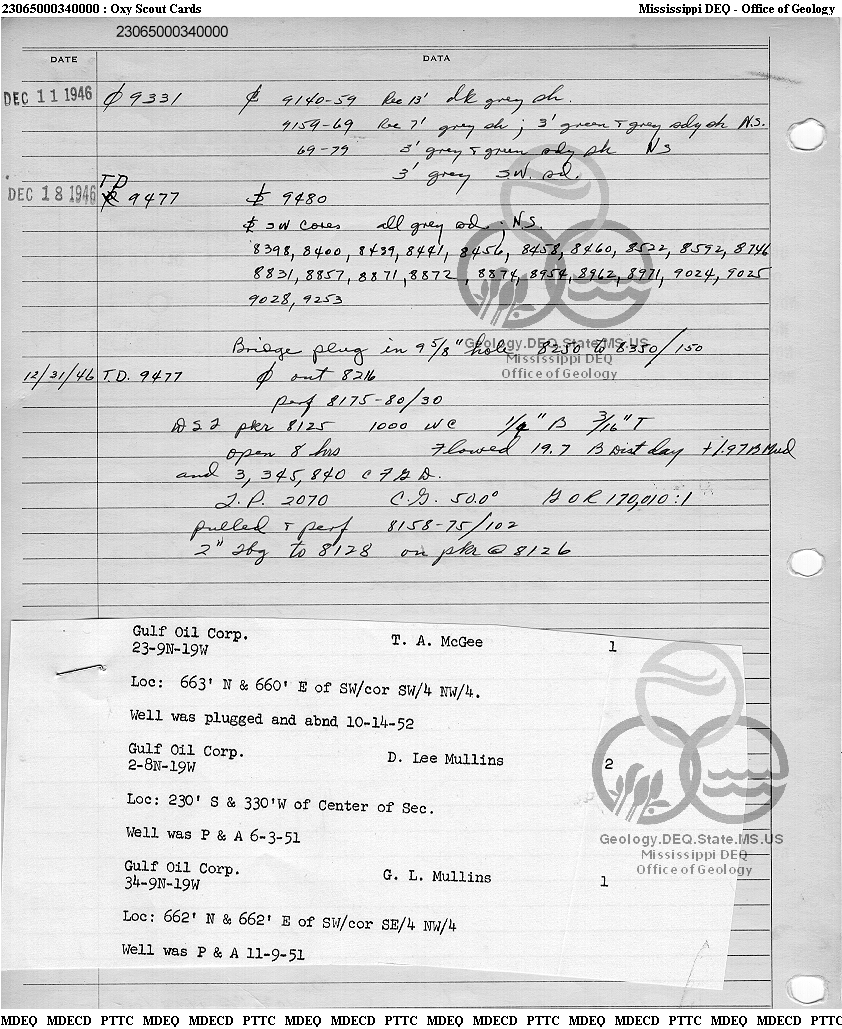 23065000340000 : Oxy Scout Cards Mississippi DEQ - Office of Geology
23065000340000
DATE DATA
DEC 11 1946 ₵ 9331 ₵ 9140-59 Rec 13' dk grey sh.
9159-69 Rec 7' grey sh; 3' green + grey sdy sh N.S.
69-79 5' grey + green sdy sh NS
3' grey S.W. sd.
DEC 18 1946 TD 9477 9480
SW Cores all grey sd. N.S.
8398, 8400, 8439, 8441, 8456, 8458, 8460, 8522, 8592, 8746
8831, 8857, 8871, 8872, 8874, 8954, 8962, 8971, 9024, 9025
9028, 9253
Geology.DEQ.State.MS.US
Mississippi DEQ
Office of Geology
Bridge plug in 9 5/8" hole 8250 to 8350/150
12/31/46 T.D. 9477 out 8216
perf 8175-80/30
DST pkr 8125 1000 WC 1/4" B 3/16" T
open 8 hrs Flowed 19.7 B Dist day + 1.97 B Mud
and 3,345,840 CFGD.
T.P. 2070 C.G. 50.0° GOR 170,010:1
pulled + perf 8158-75/102
2" tbg to 8128 on pkr @ 8126
Gulf Oil Corp. T. A. McGee 1
23-9N-19W
Loc: 663' N & 660' E of SW/cor SW/4 NW/4.
Well was plugged and abnd 10-14-52
Gulf Oil Corp. D. Lee Mullins 2
2-8N-19W
Loc: 230' S & 330'W of Center of Sec.
Well was P & A 6-3-51
Geology.DEQ.State.MS.US
Mississippi DEQ
Office of Geology
Gulf Oil Corp. G. L. Mullins 1
34-9N-19W
Loc: 662' N & 662' E of SW/cor SE/4 NW/4
Well was P & A 11-9-51
MDEQ MDECD PTTC MDEQ MDECD PTTC MDEQ MDECD PTTC MDEQ MDECD PTTC MDEQ MDECD PTTC MDEQ MDECD PTTC